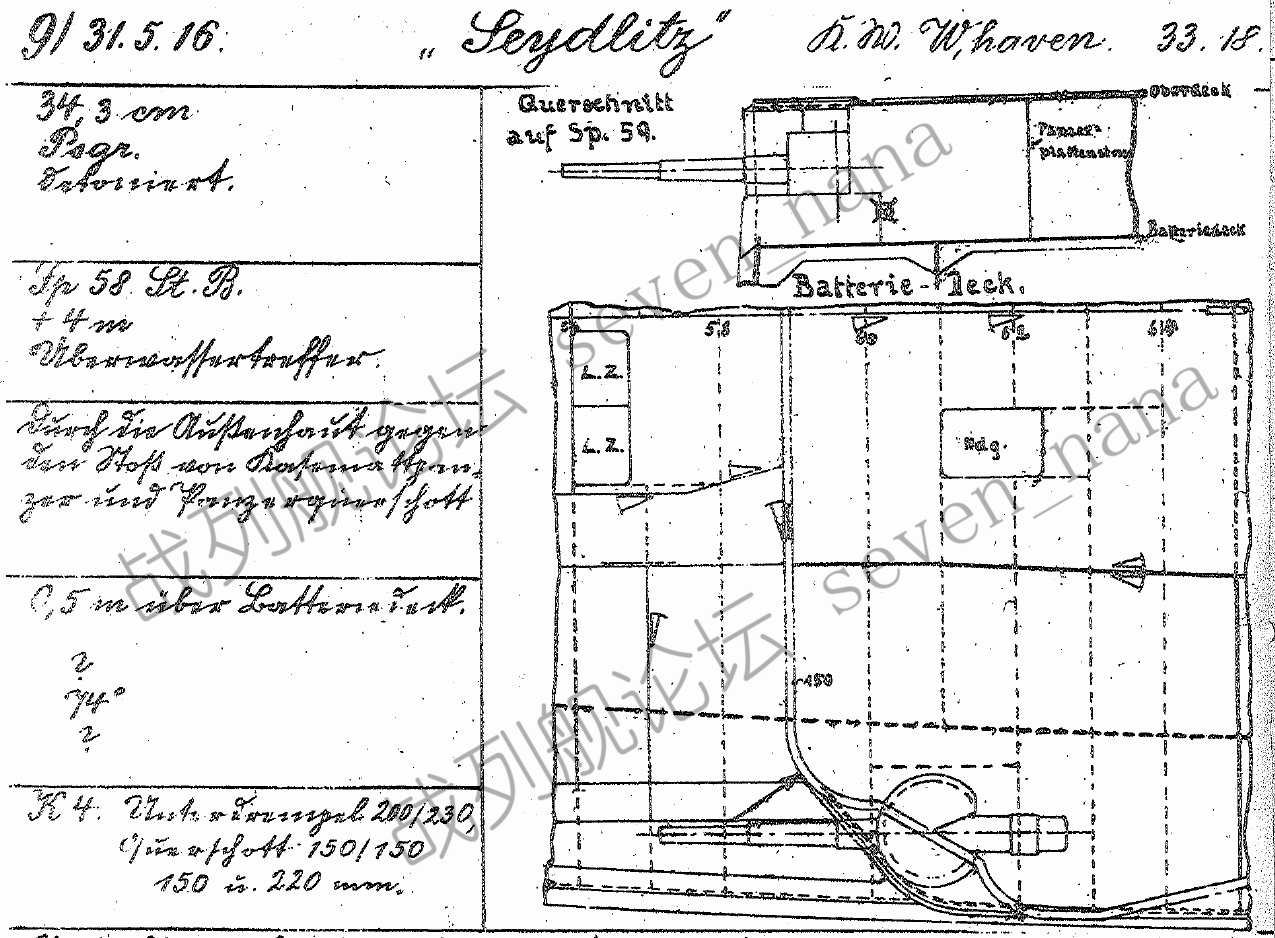 9) 31.5.16. „Seydlitz“ K.W. W,haven. 33.18.
34,3 cm
Psgr.
detoniert.
Sp 58 St.B.
+ 4 m
Überwassertreffer.
Durch die Außenhaut gegen
den Stoß von Kasemattpan-
zer und Panzerquerschott
0,5 m über Batteriedeck.
?
74°
?
K 4. Unterdrempel 200/230,
Querschott 150/150
150 u. 220 mm.
Querschnitt
auf Sp. 59.
Oberdeck
Panzer-
Batteriedeck
Batterie-Deck.
58
60
62
L.Z.
L.Z.
Ndg.
150
战列舰论坛 seven_nana
战列舰论坛 seven_nana